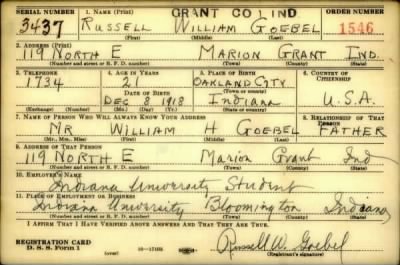 SERIAL NUMBER 1. NAME (Print) GRANT CO IND ORDER NUMBER
3437 RUSSELL WILLIAM GOEBEL 1546
(First) (Middle) (Last)
2. ADDRESS (Print)
119 NORTH E MARION GRANT IND.
(Number and street or R. F. D. number) (Town) (County) (State)
3. TELEPHONE 4. AGE IN YEARS 5. PLACE OF BIRTH 6. COUNTRY OF CITIZENSHIP
1734 21 OAKLAND CITY
DATE OF BIRTH (Town or county)
DEC 8 1918 Indiana U.S.A.
(Exchange) (Number) (Mo.) (Day) (Yr.) (State or country)
7. NAME OF PERSON WHO WILL ALWAYS KNOW YOUR ADDRESS 8. RELATIONSHIP OF THAT PERSON
MR WILLIAM H GOEBEL FATHER
(Mr., Mrs., Miss) (First) (Middle) (Last)
9. ADDRESS OF THAT PERSON
119 NORTH E Marion Grant Ind
(Number and street or R. F. D. number) (Town) (County) (State)
10. EMPLOYER'S NAME
Indiana University Student
11. PLACE OF EMPLOYMENT OR BUSINESS
Indiana University Bloomington Indiana
(Number and street or R. F. D. number) (Town) (County) (State)
I AFFIRM THAT I HAVE VERIFIED ABOVE ANSWERS AND THAT THEY ARE TRUE.
REGISTRATION CARD
D. S. S. Form 1 (over) Russell W. Goebel
(Registrant's signature)